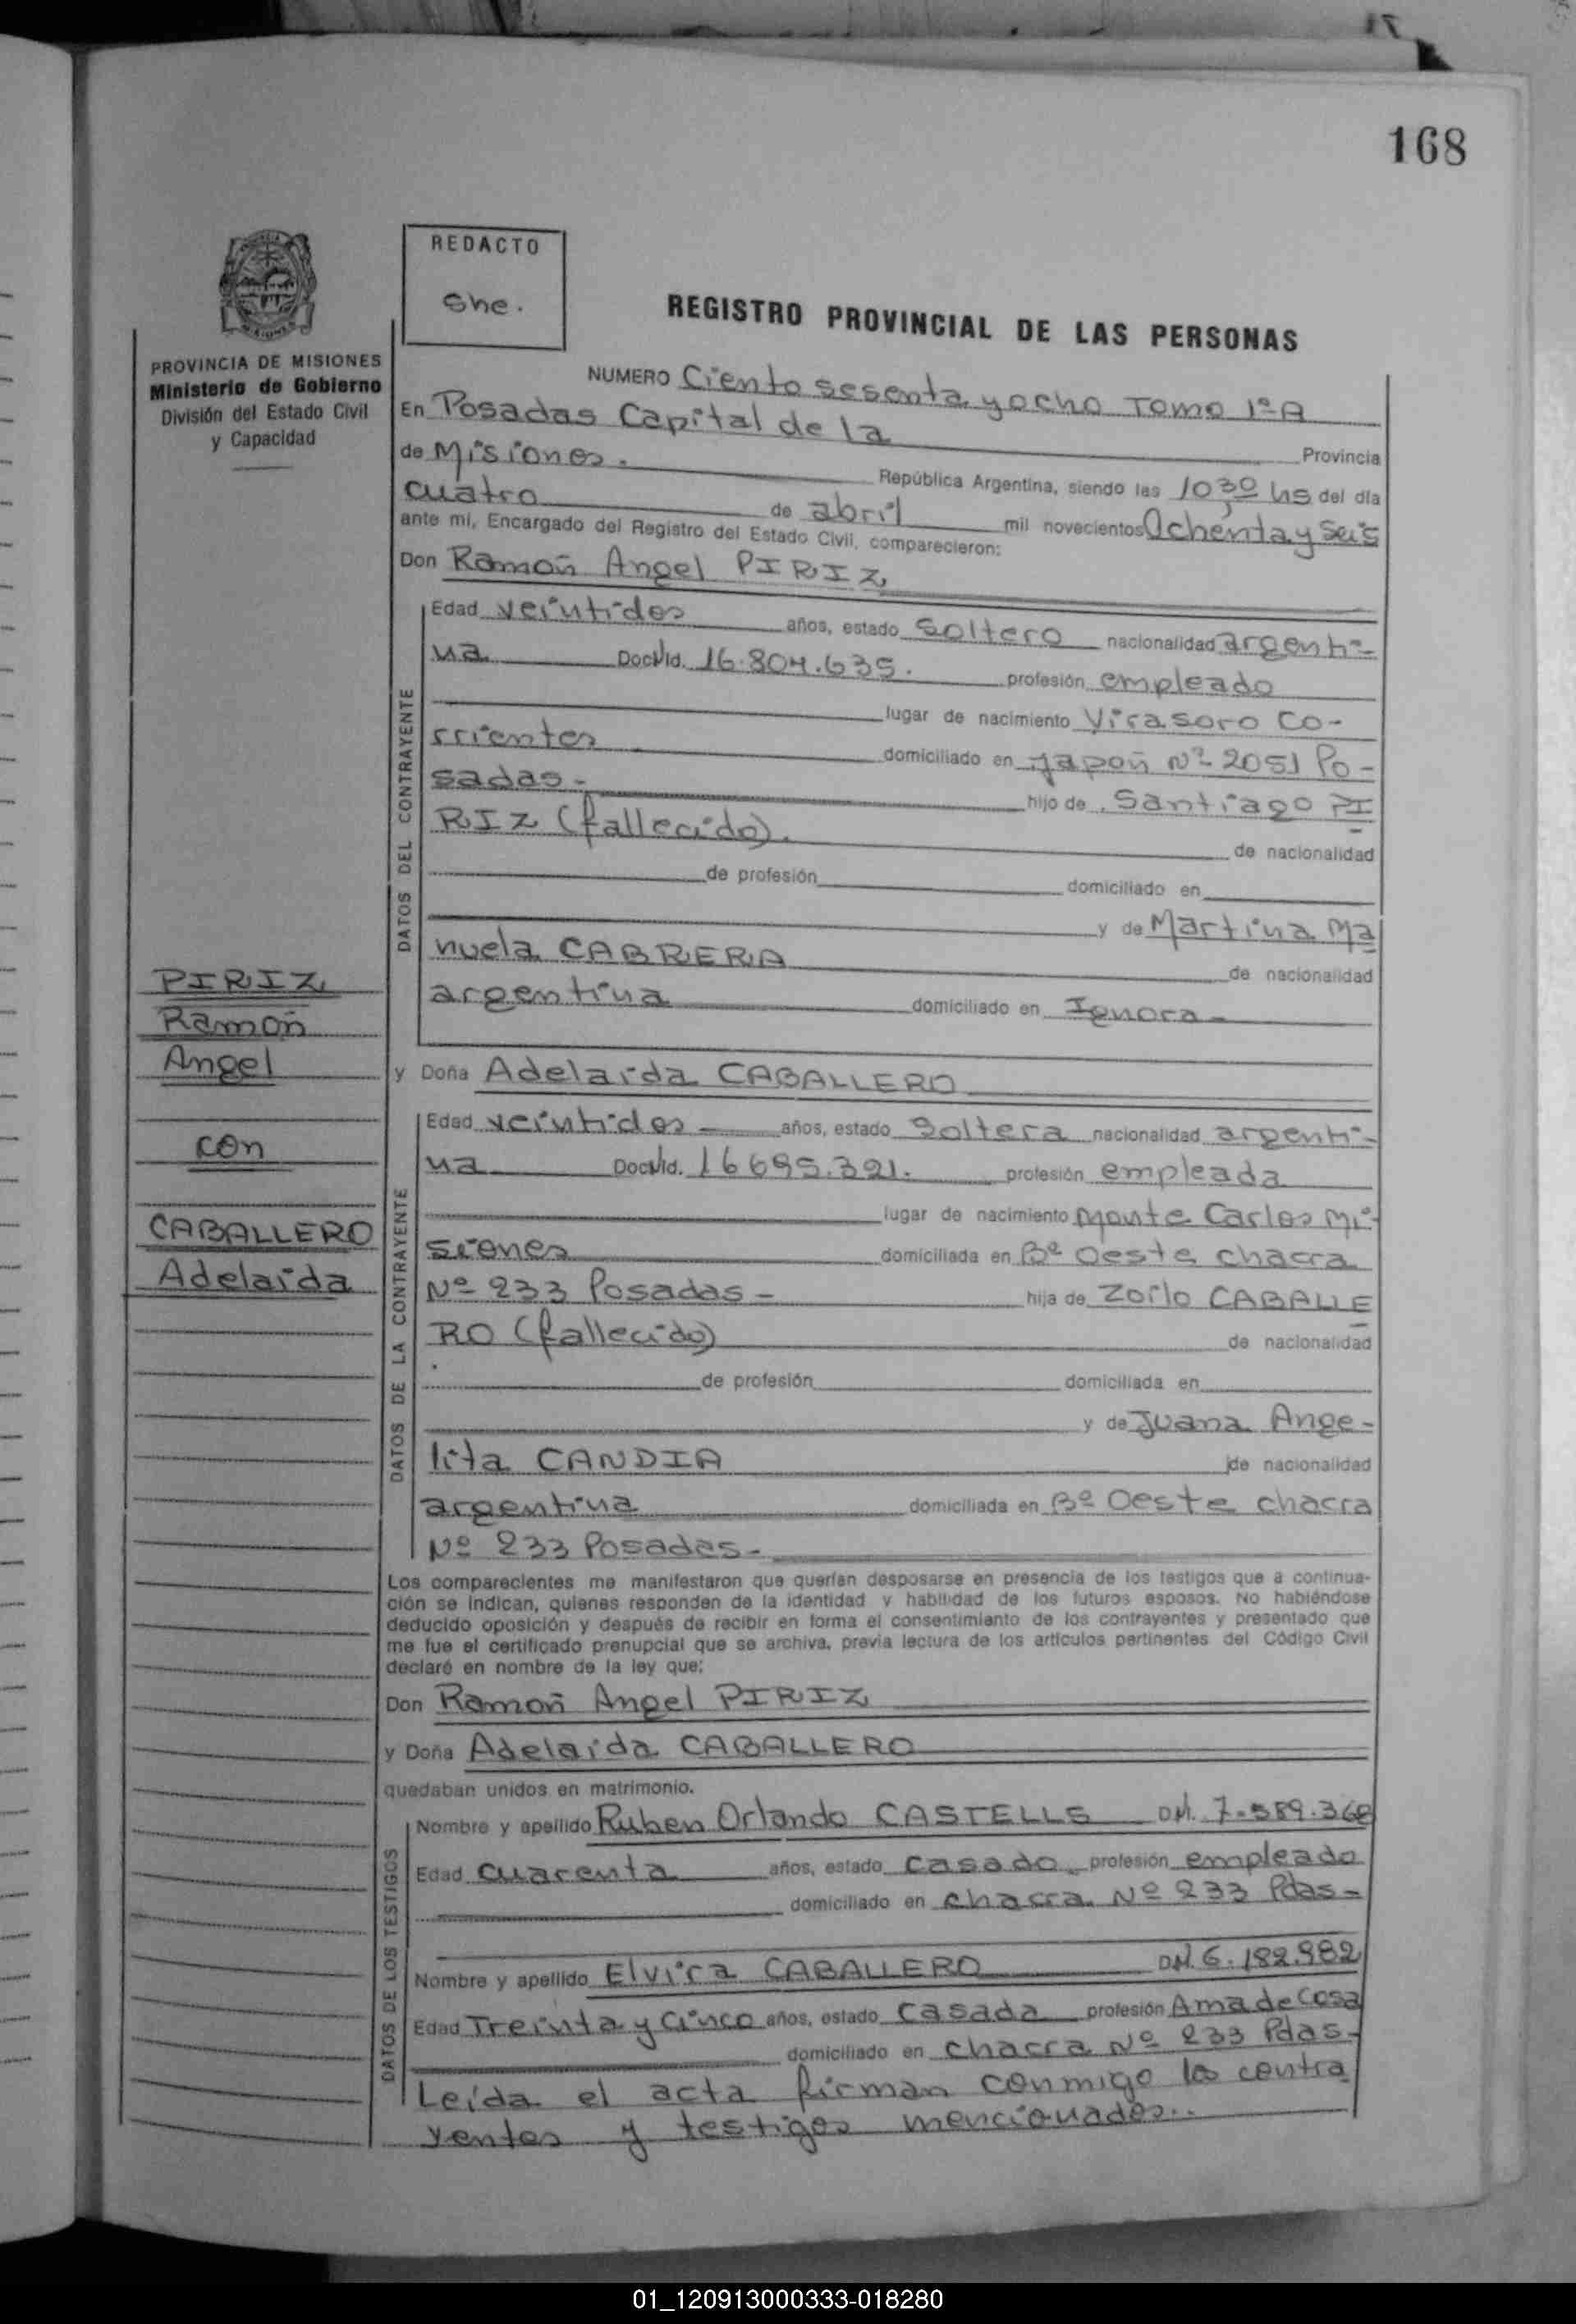 168
REDACTO
She.
REGISTRO PROVINCIAL DE LAS PERSONAS
PROVINCIA DE MISIONES
Ministerio de Gobierno
División del Estado Civil
y Capacidad
NUMERO Ciento sesenta y ocho Tomo 1º A
En Posadas Capital de la Provincia
de Misiones. República Argentina, siendo las 10,30 hs del día
cuatro de abril mil novecientos Ochenta y seis
ante mí, Encargado del Registro del Estado Civil, comparecieron:
Don Ramón Angel PIRIZ
DATOS DEL CONTRAYENTE
Edad veintidos años, estado Soltero nacionalidad argenti-
na Doc. Nid. 16.804.635. profesión empleado
lugar de nacimiento Virasoro Co-
rrientes domiciliado en Japón Nº 2051 Po-
sadas- hijo de Santiago PI
RIZ (fallecido). de nacionalidad
de profesión domiciliado en
y de Martina Ma
nuela CABRERA de nacionalidad
argentina domiciliado en Ignora-
y Doña Adelaida CABALLERO
DATOS DE LA CONTRAYENTE
Edad veintidos- años, estado Soltera nacionalidad argenti-
na Doc. Nid. 16695.321. profesión empleada
lugar de nacimiento Monte Carlos Mi-
siones domiciliada en Bº Oeste chacra
Nº 233 Posadas- hija de Zoilo CABALLE
RO (fallecido) de nacionalidad
de profesión domiciliada en
y de Juana Ange-
lita CANDIA de nacionalidad
argentina domiciliada en Bº Oeste chacra
Nº 233 Posadas-
PIRIZ
Ramón
Angel
con
CABALLERO
Adelaida
Los comparecientes me manifestaron que querían desposarse en presencia de los testigos que a continua-
ción se indican, quienes responden de la identidad y habilidad de los futuros esposos. No habiéndose
deducido oposición y después de recibir en forma el consentimiento de los contrayentes y presentado que
me fue el certificado prenupcial que se archiva, previa lectura de los artículos pertinentes del Código Civil
declaré en nombre de la ley que:
Don Ramón Angel PIRIZ
y Doña Adelaida CABALLERO
quedaban unidos en matrimonio.
DATOS DE LOS TESTIGOS
Nombre y apellido Ruben Orlando CASTELLS DNI. 7.589.368
Edad cuarenta años, estado casado profesión empleado
domiciliado en chacra Nº 233 Pdas-
Nombre y apellido Elvira CABALLERO DNI. 6.182.982
Edad Treinta y Cinco años, estado casada profesión Ama de Casa
domiciliado en chacra Nº 233 Pdas-
Leída el acta firman conmigo los contra
yentes y testigos mencionados..
01_120913000333-018280